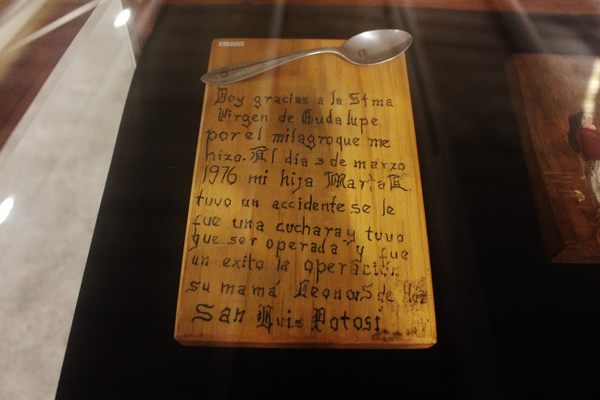 Doy gracias a la Stma.
Virgen de Gudalupe
por el milagro que me
hizo. El dia 3 de marzo
1976 mi hija Marta E
tuvo un accidente se le
fue una cuchara y tuvo
que ser operada y fue
un exito la operación
su mamá Leonor S de
San Luis Potosi